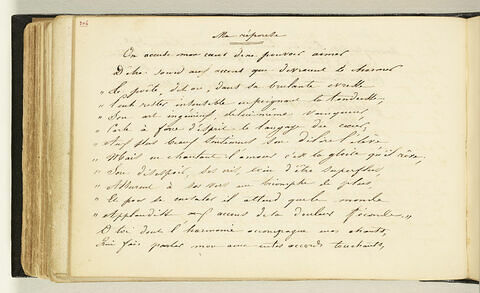 Ma réponse
On accuse mon cœur de ne pouvoir aimer
D'être sourd aux accens qui devraient le charmer
" Le poëte, dit-on, dans sa brulante ivresse
" Peut rester insensible en peignant la tendresse,
" Son art ingénieux, de lui-même vainqueur
" L'aide à faire d'esprit le langage du cœur,
" Aux plus beaux sentimens son délire l'élève
" Mais en chantant l'amour c'est la gloire qu'il rêve,
" Son désespoir, ses cris, loin d'être superflus,
" Assurent à ses vers un triomphe de plus,
" Et pour se consoler il attend que le monde
" Applaudisse aux accens de sa douleur féconde "
O toi dont l'harmonie accompagne mes chants,
Qui fais parler mon ame en tes accords touchants,